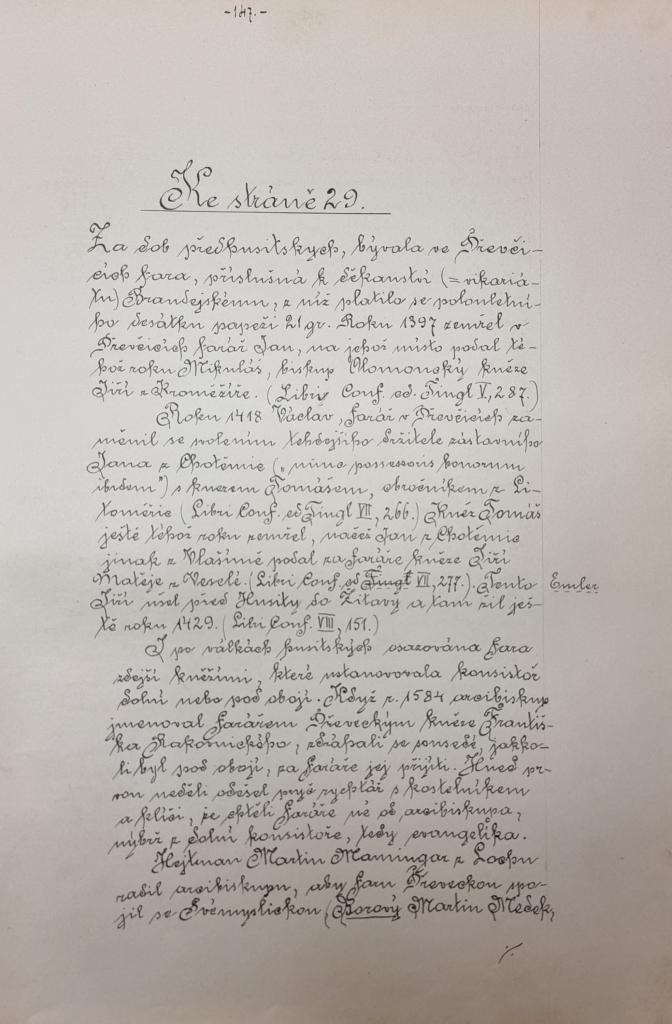 -147.-
Ke stráně 29.
Za dob předhusitských, bývala ve Dřevči-
cích fara, příslušná k děkanství (= vikariá-
tu) Brandejskému, z níž platilo se polouletní-
ho desátku papeži 21 gr. Roku 1397 zemřel v
Dřevčicích farář Jan, na jehož místo podal té-
hož roku Mikuláš, biskup Olomoucký kněze
Jiří z Kroměříže. (Libri Conf. ed. Tingl V, 287.)
Roku 1418 Václav, farář v Dřevčicích za-
měnil se svolením tehdejšího držitele zástavního
Jana z Chotěmic („nunc possessoris bonorum
ibidem") s knězem Tomášem, obročníkem z Li-
toměřic (Libri Conf. ed Tingl VII, 266.) Kněz Tomáš
ještě téhož roku zemřel, načež Jan z Chotěmic
jinak z Vlašimě podal za faráře kněze Jiří
Matěje z Veselé. (Libri Conf. ed Tingl VII, 277.). Tento Emler
Jiří ušel před Husity do Žitavy a tam žil ješ-
tě roku 1429. (Libri Conf. VIII, 151.)
I po válkách husitských osazována fara
zdejší kněžími, které ustanovovala konsistoř
dolní nebo pod obojí. Když r. 1584 arcibiskup
jmenoval farářem Dřeveckým kněze Františ-
ka Rakovnického, zdráhali se sousedé, jakko-
li byl pod obojí, za faráře jej přijíti. Hned pr-
vou neděli odešel pryč rychtář s kostelníkem
a klíči, že chtěli faráře ne od arcibiskupa,
nýbrž z dolní konsistoře, tedy evangelíka.
Hejtman Martin Maningar z Lochu
radil arcibiskupu, aby faru Dřeveckou spo-
jil se Svémyslickou (Borový Martin Medek,
./.